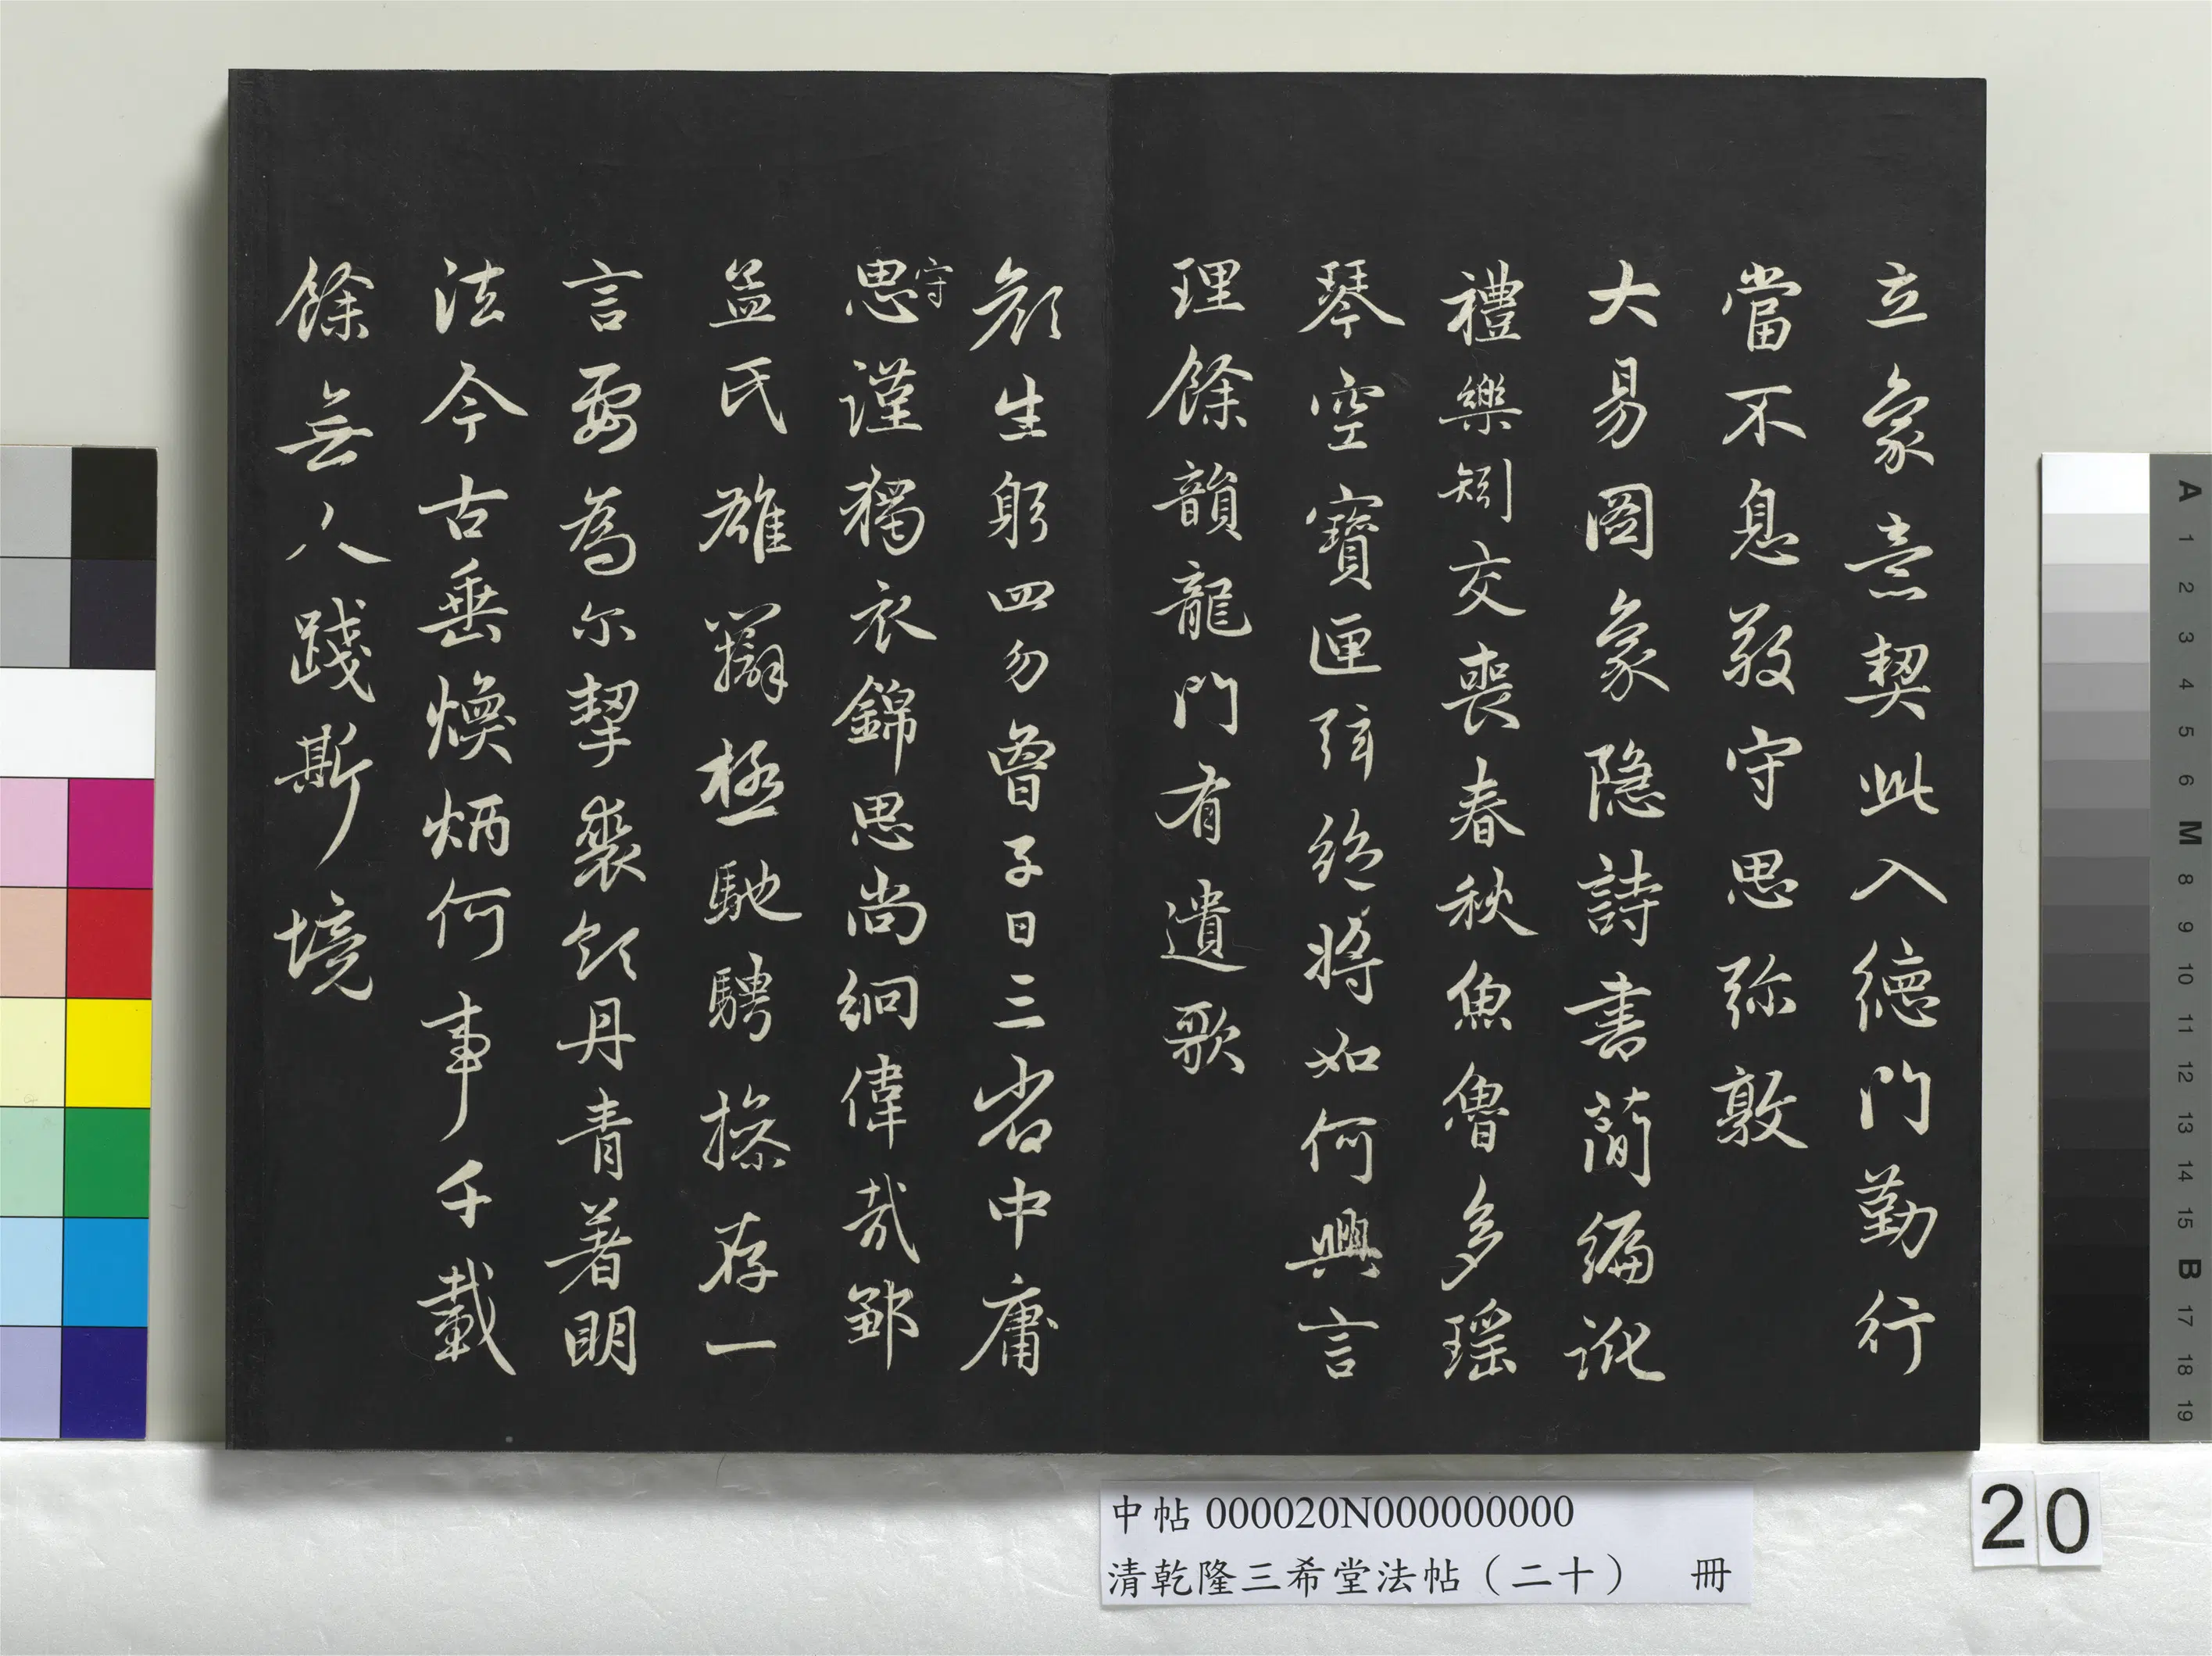 立象意契此入德門勤行
當不息敬守思弥敦
大易圖象隱詩書簡編訛
禮樂矧交喪春秋魚魯多瑶
琴空寶匣弦絶將如何興言
理餘韻龍門有遺歌
顔生躬四勿曾子日三省中庸
思守謹獨衣錦思尚絅偉哉鄒
孟氏雄辯極馳騁操存一
言要為尔挈裘領丹青著明
法今古垂煥炳何事千載
餘無人踐斯境
中帖 000020N000000000
清乾隆三希堂法帖（二十） 冊
20
A 1 2 3 4 5 6 M 8 9 10 11 12 13 14 15 B 17 18 19